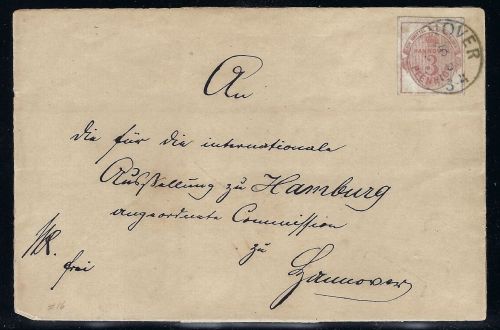 HANNOVER
HANNOVER
3
PFENNIGE
An
die für die internationale
Ausstellung zu Hamburg
angeordnete Commission
zu
frei
Hannover
#16